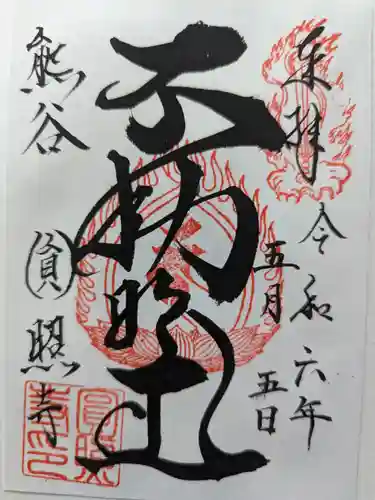 奉拝
令和六年
五月
五日
不動明王
熊谷
圓照寺